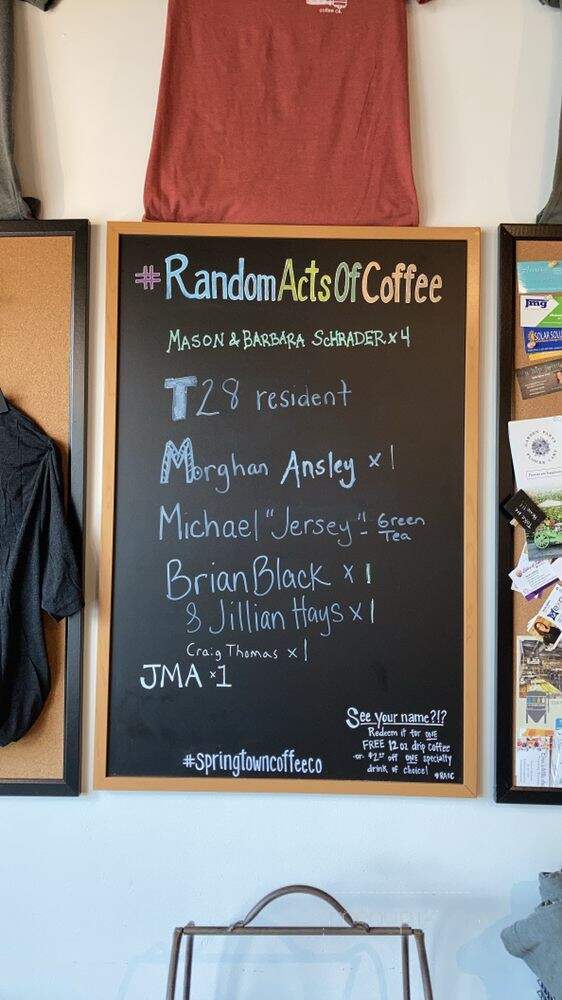 coffee co.
#RandomActsOfCoffee
MASON & BARBARA SCHRADER x 4
T28 resident
Morghan Ansley x 1
Michael "Jersey" - Green
Tea
Brian Black x 1
& Jillian Hays x 1
Craig Thomas x 1
JMA x1
See your name?!?
Redeem it for ONE
FREE 12 oz drip coffee
-or- $2.00 off ONE specialty
drink of choice!
#RAOC
#springtowncoffeeco
jmg
SOLAR SOLU